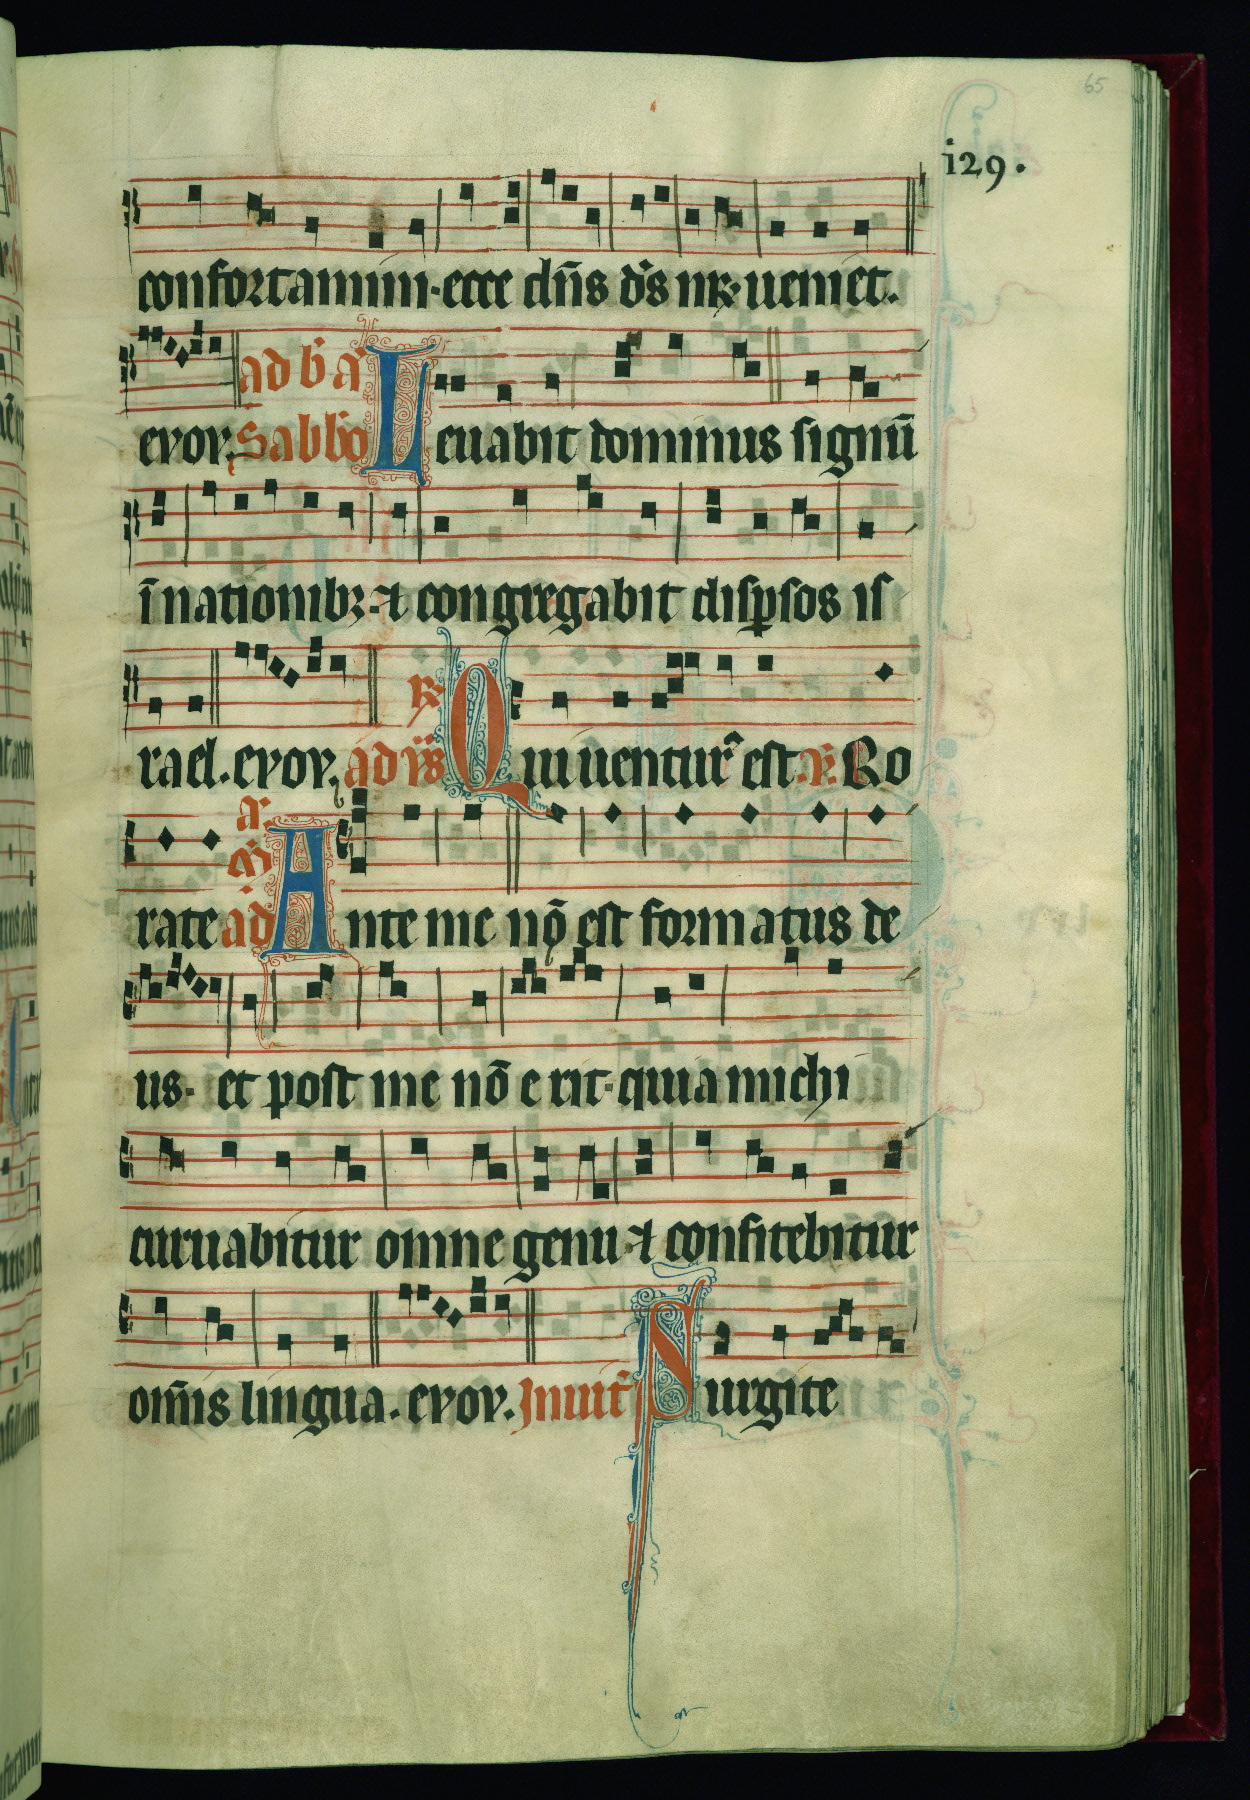 65
i29.
confortamini·ecce dn̄s d̄s nr̄·ueniet.
evov. ad b̄ ā
Sabb̄o Leuabit dominus signū
ī nationibꝫ·⁊ congregabit disꝑsos is
rael.evov. ad v̄s R̄ Qui uenturꝰ est. v̄. Ro
rate ad m̄ a Ante me nō est formatus de
us· et post me nō erit·quia michi
curuabitur omne genu·⁊ confitebitur
om̄is lingua. evov. Inuit̄ Surgite